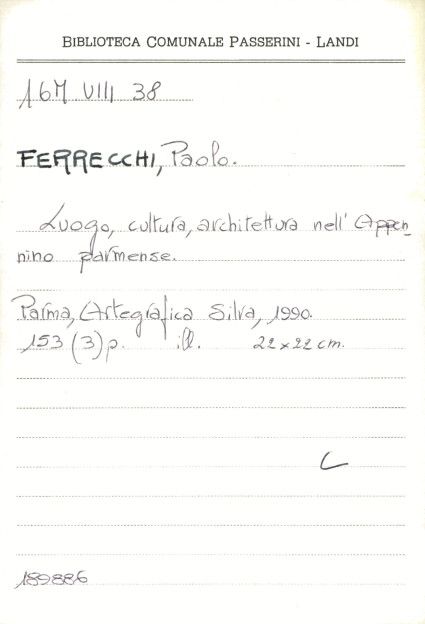 BIBLIOTECA COMUNALE PASSERINI - LANDI
16M VIII 38
FERRECCHI, Paolo.
Luogo, cultura, architettura nell' Appen_
nino parmense.
Parma, Artegrafica Silva, 1990.
153 (3) p. ill. 22x22 cm.
C
189886